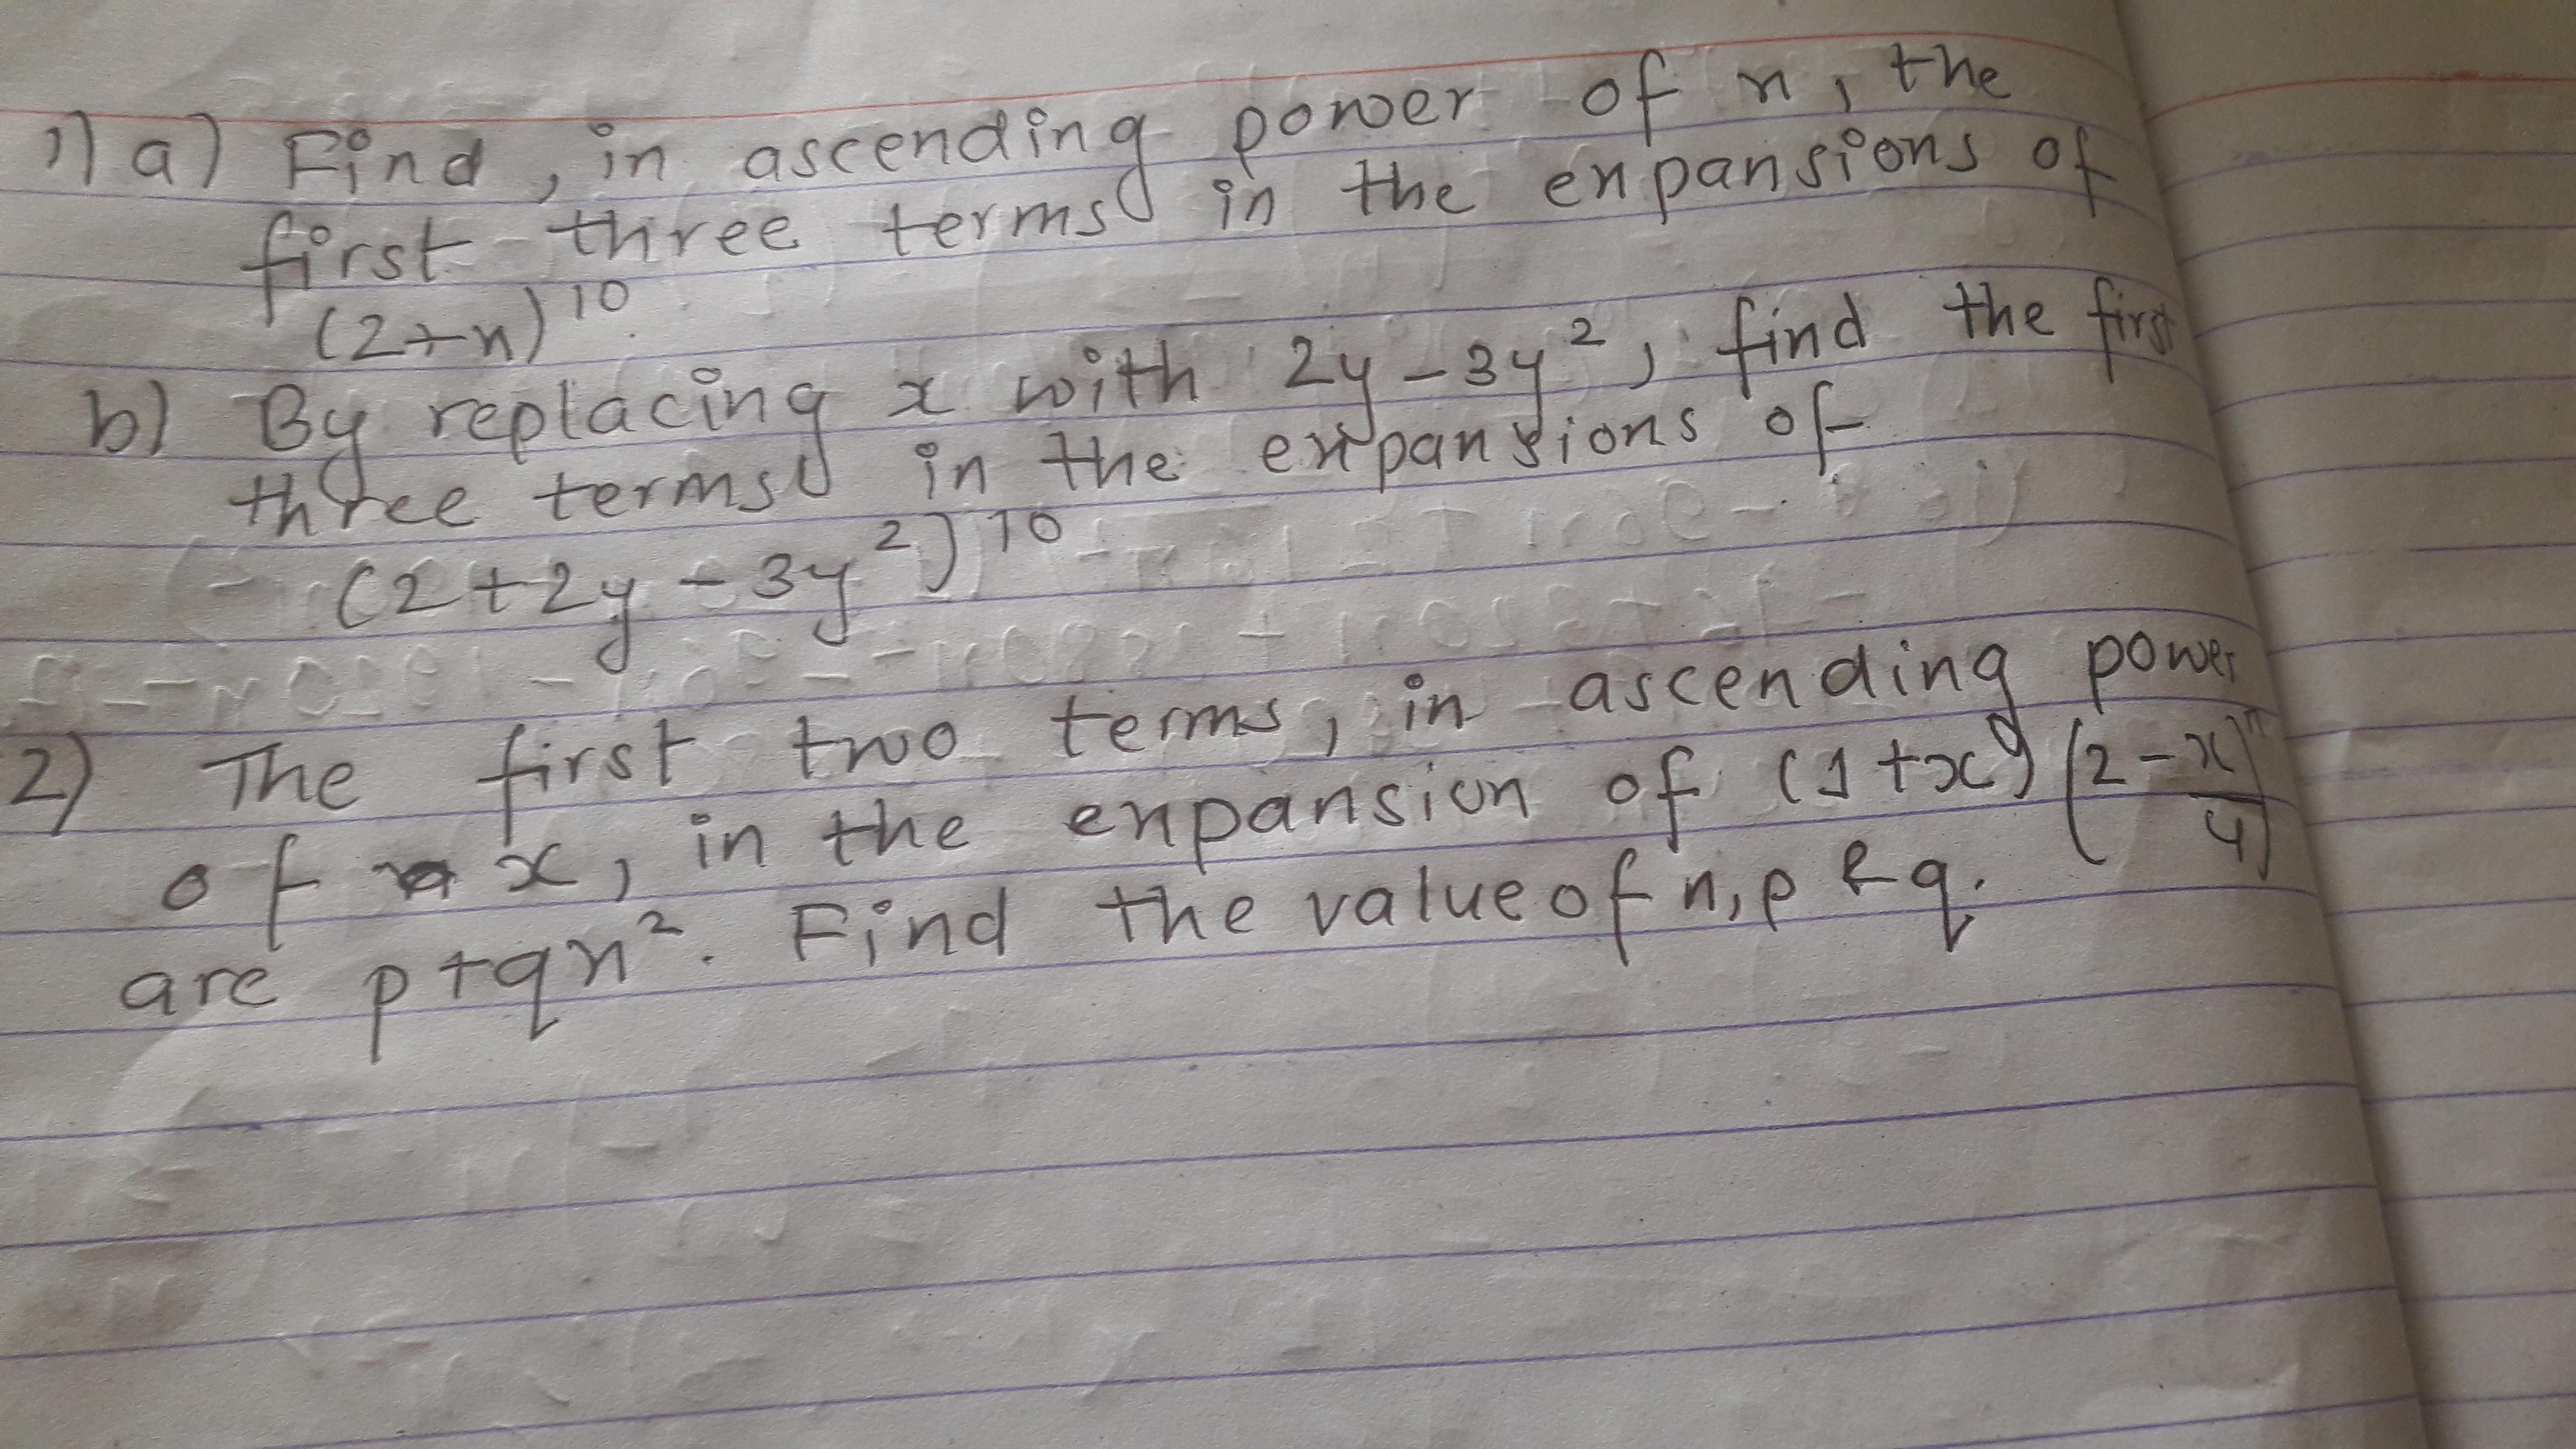 1) a) Find, in ascending power of x, the
first three terms in the expansions of
(2+x)^10.
b) By replacing x with 2y-3y², find the first
three terms in the expansions of
(2+2y-3y²)^10
2) The first two terms, in ascending power
of x, in the expansion of (1+x)(2-x/4)^n
are p+qx². Find the value of n, p & q.